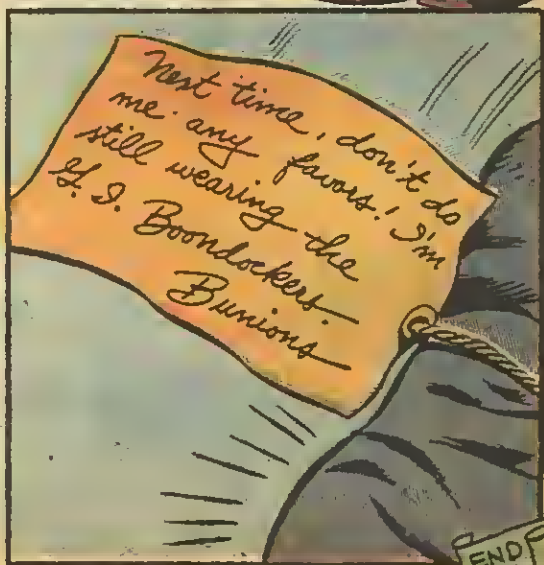 Next time, don't do
me any favors! I'm
still wearing the
G. I. Boondockers.
Bunions
END